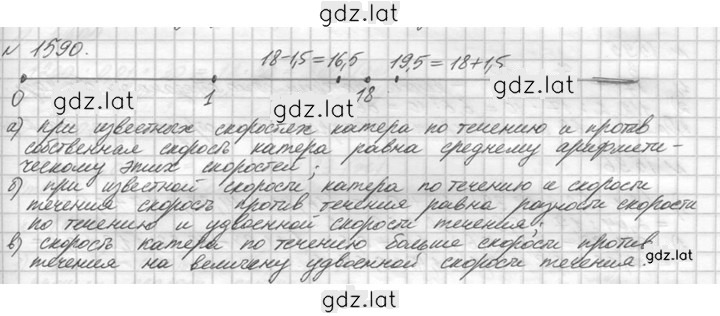 gdz.lat
N 1590.
18-1,5=16,5 19,5=18+1,5
0 1 18
gdz.lat gdz.lat
а) при известных скоростях катера по течению и против
собственная скорость катера равна среднему арифмети-
ческому этих скоростей;
б) при известной скорости катера по течению и скорости
течения скорость против течения равна разности скорости
по течению и удвоенной скорости течения;
в) скорость катера по течению больше скорости против
течения на величину удвоенной скорости течения.
gdz.lat gdz.lat
gdz.lat